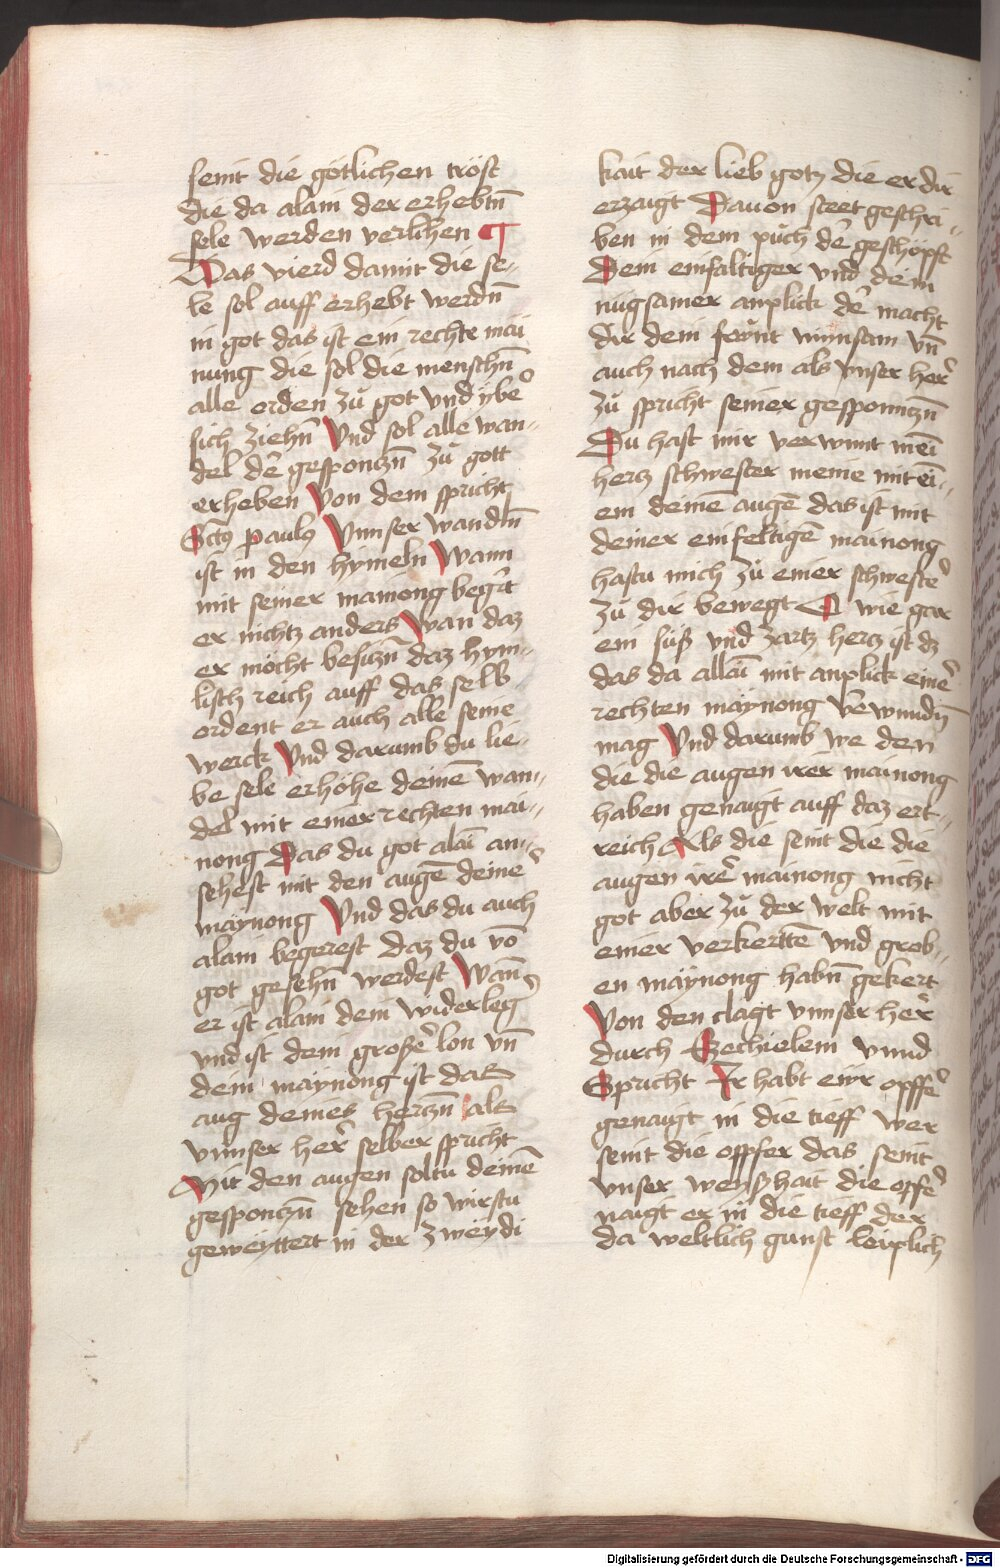 seint die götlichen tröst
die da alain der erhebtn̄
sele werden verlihen
Das vierd damit die se-
le sol auff erhebt werdn̄
in got das ist ein rechte mai
nung die sol die menschn̄
alle orden zů got vnd ybe᷑
sich ziehn̄ Vnd sol alle wan-
del de᷑ gesponczn̄ zů gott
erheben Von dem spricht
Sctꝰ paulꝰ Vnnser wandln̄
ist in den hymeln Wann
mit seiner mainong beg᷑t
er nichtz anders Wan daz
er möcht besiczn̄ daz hym-
lisch reich auff das selb
ordent er auch alle seine
werck Vnd darumb du lie-
be sele erhöhe deinē wan-
del mit einer rechten mai-
nong Das du got alaī an-
sehest mit den augē deine᷑
maÿnong Vnd das du auch
alain begerest daz du vō
got gesehn̄ werdest Wan̄
er ist alain dein widerleg᷑
vnd ist dein große᷑ lon vn̄
dein maÿnong ist das
aug deines herczn̄ als
vnnser her᷑ selber spricht
Mit den augen soltu deinē
gesponczn̄ sehen so wirstu
geweÿttert in der zweÿdi
kait der lieb gotz die er dir
erzaigt Dauon steet geschri-
ben in dem půch de᷑ geschöpft
Dein einfaltiger vnd dein
nügsamer anplick de᷑ macht
dir dein faÿnt wunsam vn̄
auch nach dem als vnser her᷑
zů spricht seiner gesponnczn̄
Du hast mir verwunt meī
hercz schwester meine mit eī-
em deinē augē das ist mit
deiner einfeltigē mainong
hastu mich zů einer schweste᷑
zů dir bewegt O wie gar
ein süß vnd zartz hercz ist dz
das da allaī mit anplick eine᷑
rechten maÿnong v᷑wundn̄
mag Vnd darumb we den
die die augen irer mainong
haben genaigt auff daz ert-
reich Als die seint die die
augen ire᷑ mainong nicht
got aber zů der welt mit
einer verkerttē vnd grob-
en maÿnong habn̄ gekert
Von den clagt vnnser her᷑
durch Ezechielem vnnd
Spricht Ir habt eẅr opffe᷑
genaigt in die tieff wer
seint die opffer das seint
vnser weyßhait die opfe᷑
naigt er in die tieff der
da weltlich gunst leiplich
Digitalisierung gefördert durch die Deutsche Forschungsgemeinschaft - DFG